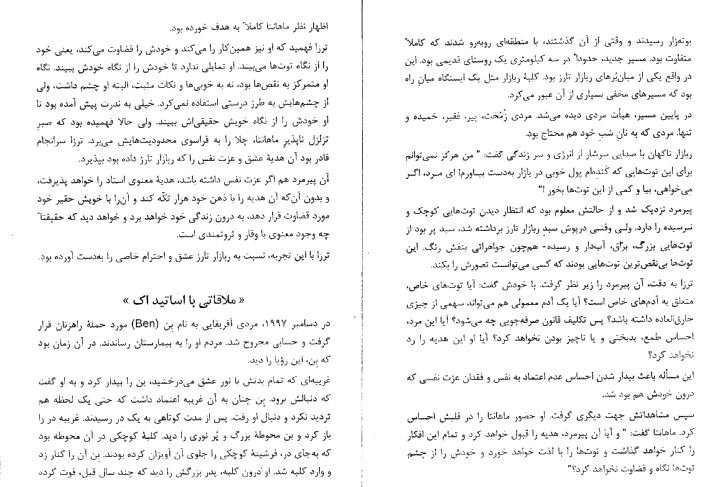 بوته‌زار رسیدند و وقتی از آن گذشتند، با منطقه‌ای روبه‌رو شدند که کاملاً
متفاوت بود. مسیر جدید، حدوداً در سه کیلومتری یک روستای قدیمی بود. این
در واقع یکی از میان‌بُرهای ربازار تارز بود. کلبهٔ ربازار مثل یک ایستگاه میان راه
بود که مسیرهای مخفی بسیاری از آن عبور می‌کرد.
در پایین مسیر، هیأت مردی دیده می‌شد. مردی زُمُخت، پیر، فقیر، خمیده و
تنها. مردی که به نانِ شب خود هم محتاج بود.
ربازار ناگهان با صدایی سرشار از انرژی و سر زندگی گفت: " من هرگز نمی‌توانم
برای این توت‌هایی که کَنده‌ام پول خوبی در بازار به‌دست بیاورم! ای مرد، اگر
می‌خواهی، بیا و کمی از این توت‌ها بخور ! "
پیرمرد نزدیک شد و از حالتش معلوم بود که انتظار دیدن توت‌هایی کوچک و
نرسیده را دارد. ولی وقتی درپوش سبدِ ربازار تارز برداشته شد، سبد پر بود از
توت‌هایی بزرگ، برّاق، آبدار و رسیده- هم‌چون جواهراتی بنفش رنگ. این
توت‌ها بی‌نقص‌ترین توت‌هایی بودند که کسی می‌توانست تصورش را بکند.
ترزا به دقت، آن پیرمرد را زیر نظر گرفت. با خودش گفت: آیا توت‌های خاص،
متعلق به آدم‌های خاص است؟ آیا یک آدم معمولی هم می‌تواند سهمی از چیزی
خارق‌العاده داشته باشد؟ پس تکلیف قانون صرفه‌جویی چه می‌شود؟ آیا این مرد،
احساس طمع، بدبختی و یا ناچیز بودن نخواهد کرد؟ آیا او این هدیه را رد
نخواهد کرد؟
این مسأله باعث بیدار شدن احساس عدم اعتماد به نفس و فقدان عزت نفسی که
درون خودش هم بود شد.
سپس مشاهداتش جهت دیگری گرفت. او حضور ماهانتا را در قلبش احساس
کرد. ماهانتا گفت: " و آیا آن پیرمرد، هدیه را قبول خواهد کرد و تمام این افکار
را کنار خواهد گذاشت و توت‌ها را با لذت خواهد خورد و خودش را از چشم
توت‌ها نگاه و قضاوت نخواهد کرد؟"
اظهار نظر ماهانتا کاملاً به هدف خورده بود.
ترزا فهمید که او نیز همین‌کار را می‌کند و خودش را قضاوت می‌کند، یعنی خود
را از نگاه توت‌ها می‌بیند. او تمایلی ندارد تا خودش را از نگاه خودش ببیند. نگاه
او متمرکز به نقص‌ها بود، نه به خوبی‌ها و نکات مثبت. البته او چشم داشت، ولی
از چشم‌هایش به طرز درستی استفاده نمی‌کرد. خیلی به ندرت پیش آمده بود تا
او خودش را از نگاه خویش حقیقی‌اش ببیند. ولی حالا فهمیده بود که صبر
تزلزل ناپذیر ماهانتا، چلا را به فراسوی محدودیت‌هایش می‌برد. ترزا سرانجام
قادر بود آن هدیهٔ عشق و عزت نفس را که ربازار تارز داده بود بپذیرد.
آن پیرمرد هم اگر عزت نفس داشته باشد، هدیهٔ معنوی استاد را خواهد پذیرفت،
و بدون آن‌که آن هدیه را با ذهن خود هزار تکّه کند و آن‌را با خویش حقیر خود
مورد قضاوت قرار دهد، به درون زندگی خود خواهد برد و خواهد دید که حقیقتاً
چه وجود معنوی با وقار و ثروتمندی است.
ترزا با این تجربه، نسبت به ربازار تارز عشق و احترام خاصی را به‌دست آورده بود.
« ملاقاتی با اساتید اک »
در دسامبر ۱۹۹۷، مردی آفریقایی به نام بِن (Ben) مورد حملهٔ راهزنان قرار
گرفت و حسابی مجروح شد. مردم او را به بیمارستان رساندند. در آن زمان بود
که بِن، این رؤیا را دید.
غریبه‌ای که تمام بدنش با نور عشق می‌درخشید، بن را بیدار کرد و به او گفت
که دنبالش برود. بِن چنان به آن غریبه اعتماد داشت که حتی یک لحظه هم
تردید نکرد و دنبال او رفت. پس از مدت کوتاهی به یک در رسیدند. غریبه در را
باز کرد و بن محوطهٔ بزرگ و پُر نوری را دید. کلبهٔ کوچکی در آن محوطه بود
که به‌جای در، فرشینهٔ کوچکی را جلوی آن آویزان کرده بودند. بِن آن را کنار زد
و وارد کلبه شد. او درون کلبه، پدر بزرگش را دید که چند سال قبل، فوت کرده